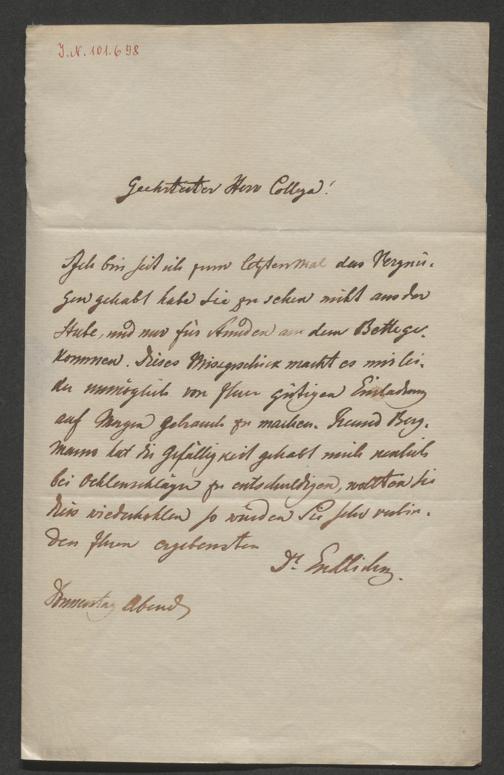 J. N. 101.698
Geehrtester Herr Collega!
Ich bin seit ich zum letztenmal das Vergnü-
gen gehabt habe Sie zu sehen nicht aus der
Stube, und nur für Stunden aus dem Bette ge-
kommen. Dieses Missgeschick macht es mir lei-
der unmöglich von Ihrer gütigen Einladung
auf Morgen gebrauch zu machen. Freund Berg-
mann hat die Gefälligkeit gehabt mich neulich
bei Oehlenschläger zu entschuldigen, wollten Sie
dies wiederhohlen so würden Sie sehr verbin-
den Ihren ergebensten
Dr Endlicher
Donnerstag Abend